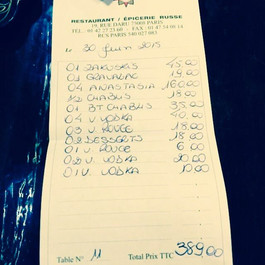 RESTAURANT / ÉPICERIE RUSSE
19, RUE DARU 75008 PARIS
TÉL. 01 47 27 23 60 - FAX : 01 47 34 00 14
RCS PARIS 340 027 083
Le 30 Juin 2015
01 ZAKOUSKIS 45.00
01 GRAVALAC 19.00
04 ANASTASIA 160.00
1/2 CHABLIS 18.00
01 BT CHABLIS 35.00
04 V VODKA 40.00
03 V ROUGE 18.00
02 DESSERTS 18.00
01 V. ROUGE 6.00
02 V. VODKA 20.00
01 V. VODKA 10.00
Table N° 11 Total Prix TTC 389,00